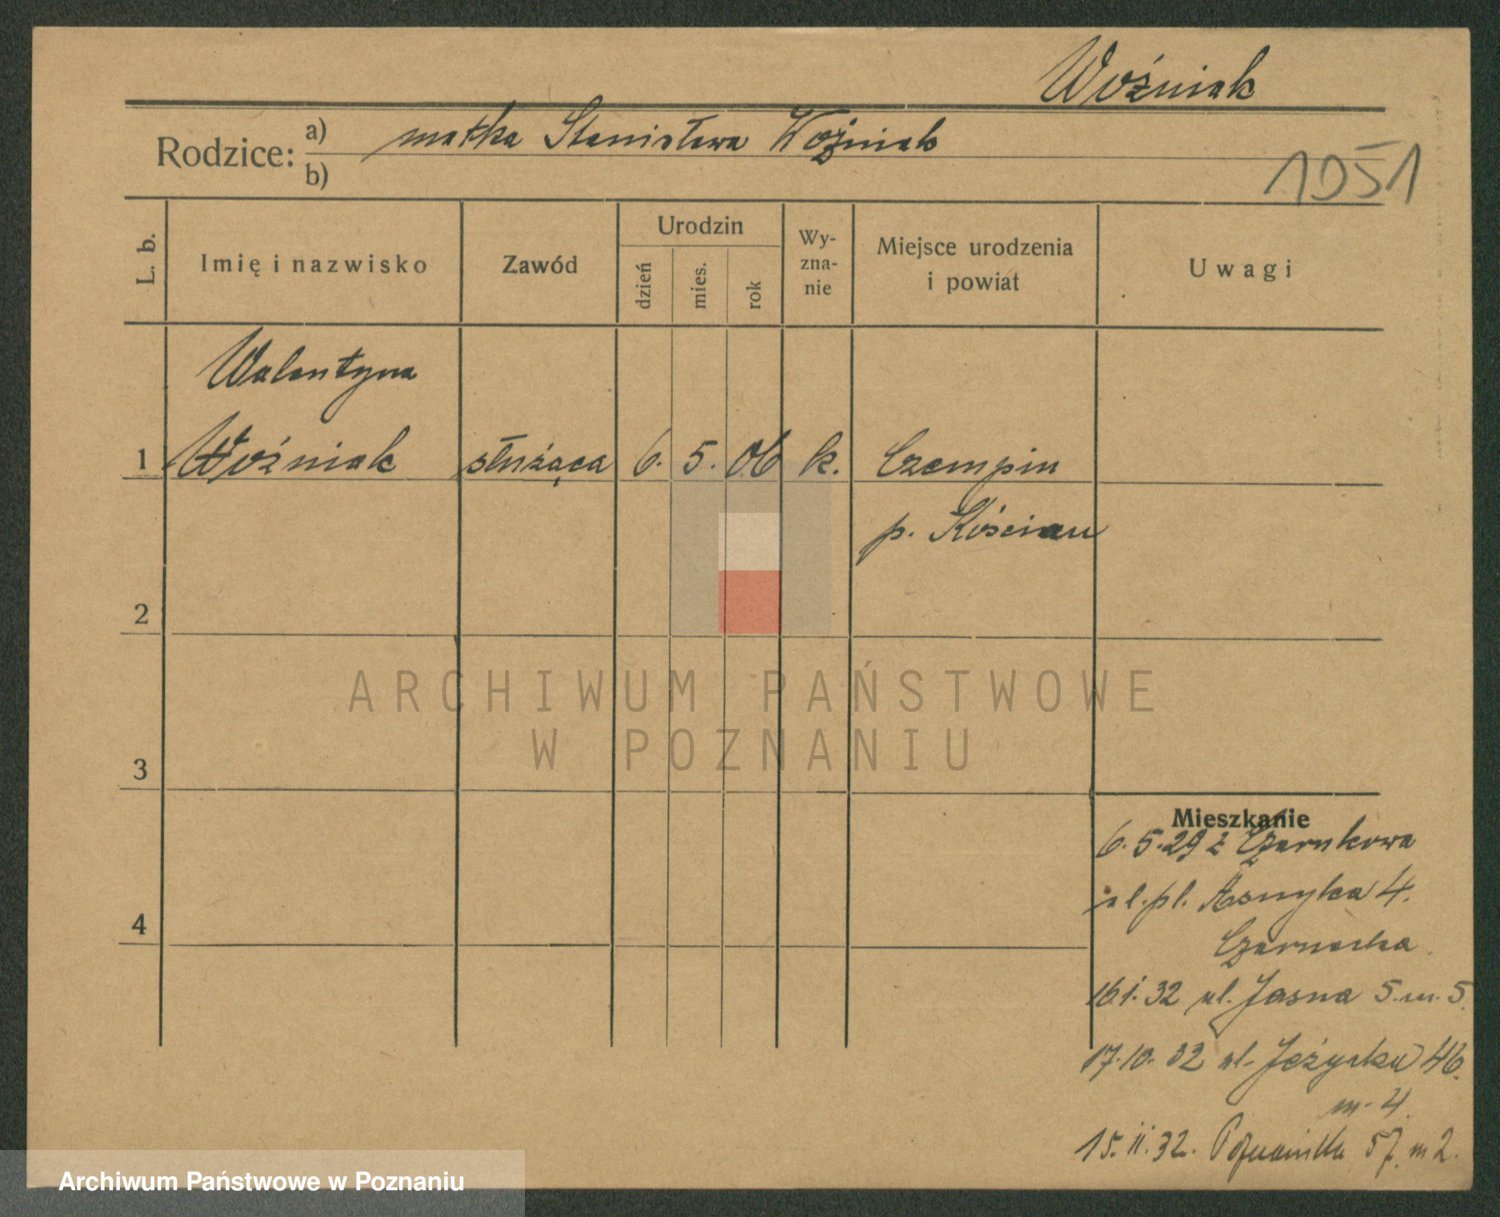 Woźniak
Rodzice: a) matka Stanisława Woźniak
b)
1051
L. b.
Imię i nazwisko
Zawód
Urodzin
dzień
mies.
rok
Wy-
zna-
nie
Miejsce urodzenia
i powiat
Uwagi
Walentyna
1 Woźniak służąca 6. 5. 06 k. Czempin
p. Kościan
2
ARCHIWUM PAŃSTWOWE
W POZNANIU
3
4
Mieszkanie
6.5.29 z Czarnkowa
pl. Asnyka 4.
Czarnecka
16.1.32 ul. Jasna 5. m. 5.
17.10.32 ul. Jeżycka 46.
m. 4.
15.II.32. Poznańska 57. m 2.
Archiwum Państwowe w Poznaniu